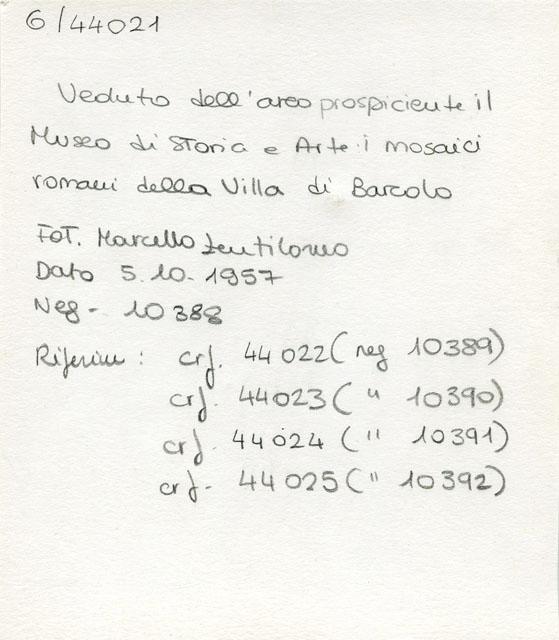 6/44021
Veduta dell'area prospiciente il
Museo di Storia e Arte: i mosaici
romani della Villa di Barcola
Fot. Marcello Zentilomo
Data 5.10.1957
Neg - 10388
Riferim : crf. 44022 (neg 10389)
crf. 44023 (" 10390)
crf. 44024 (" 10391)
crf- 44025 (" 10392)